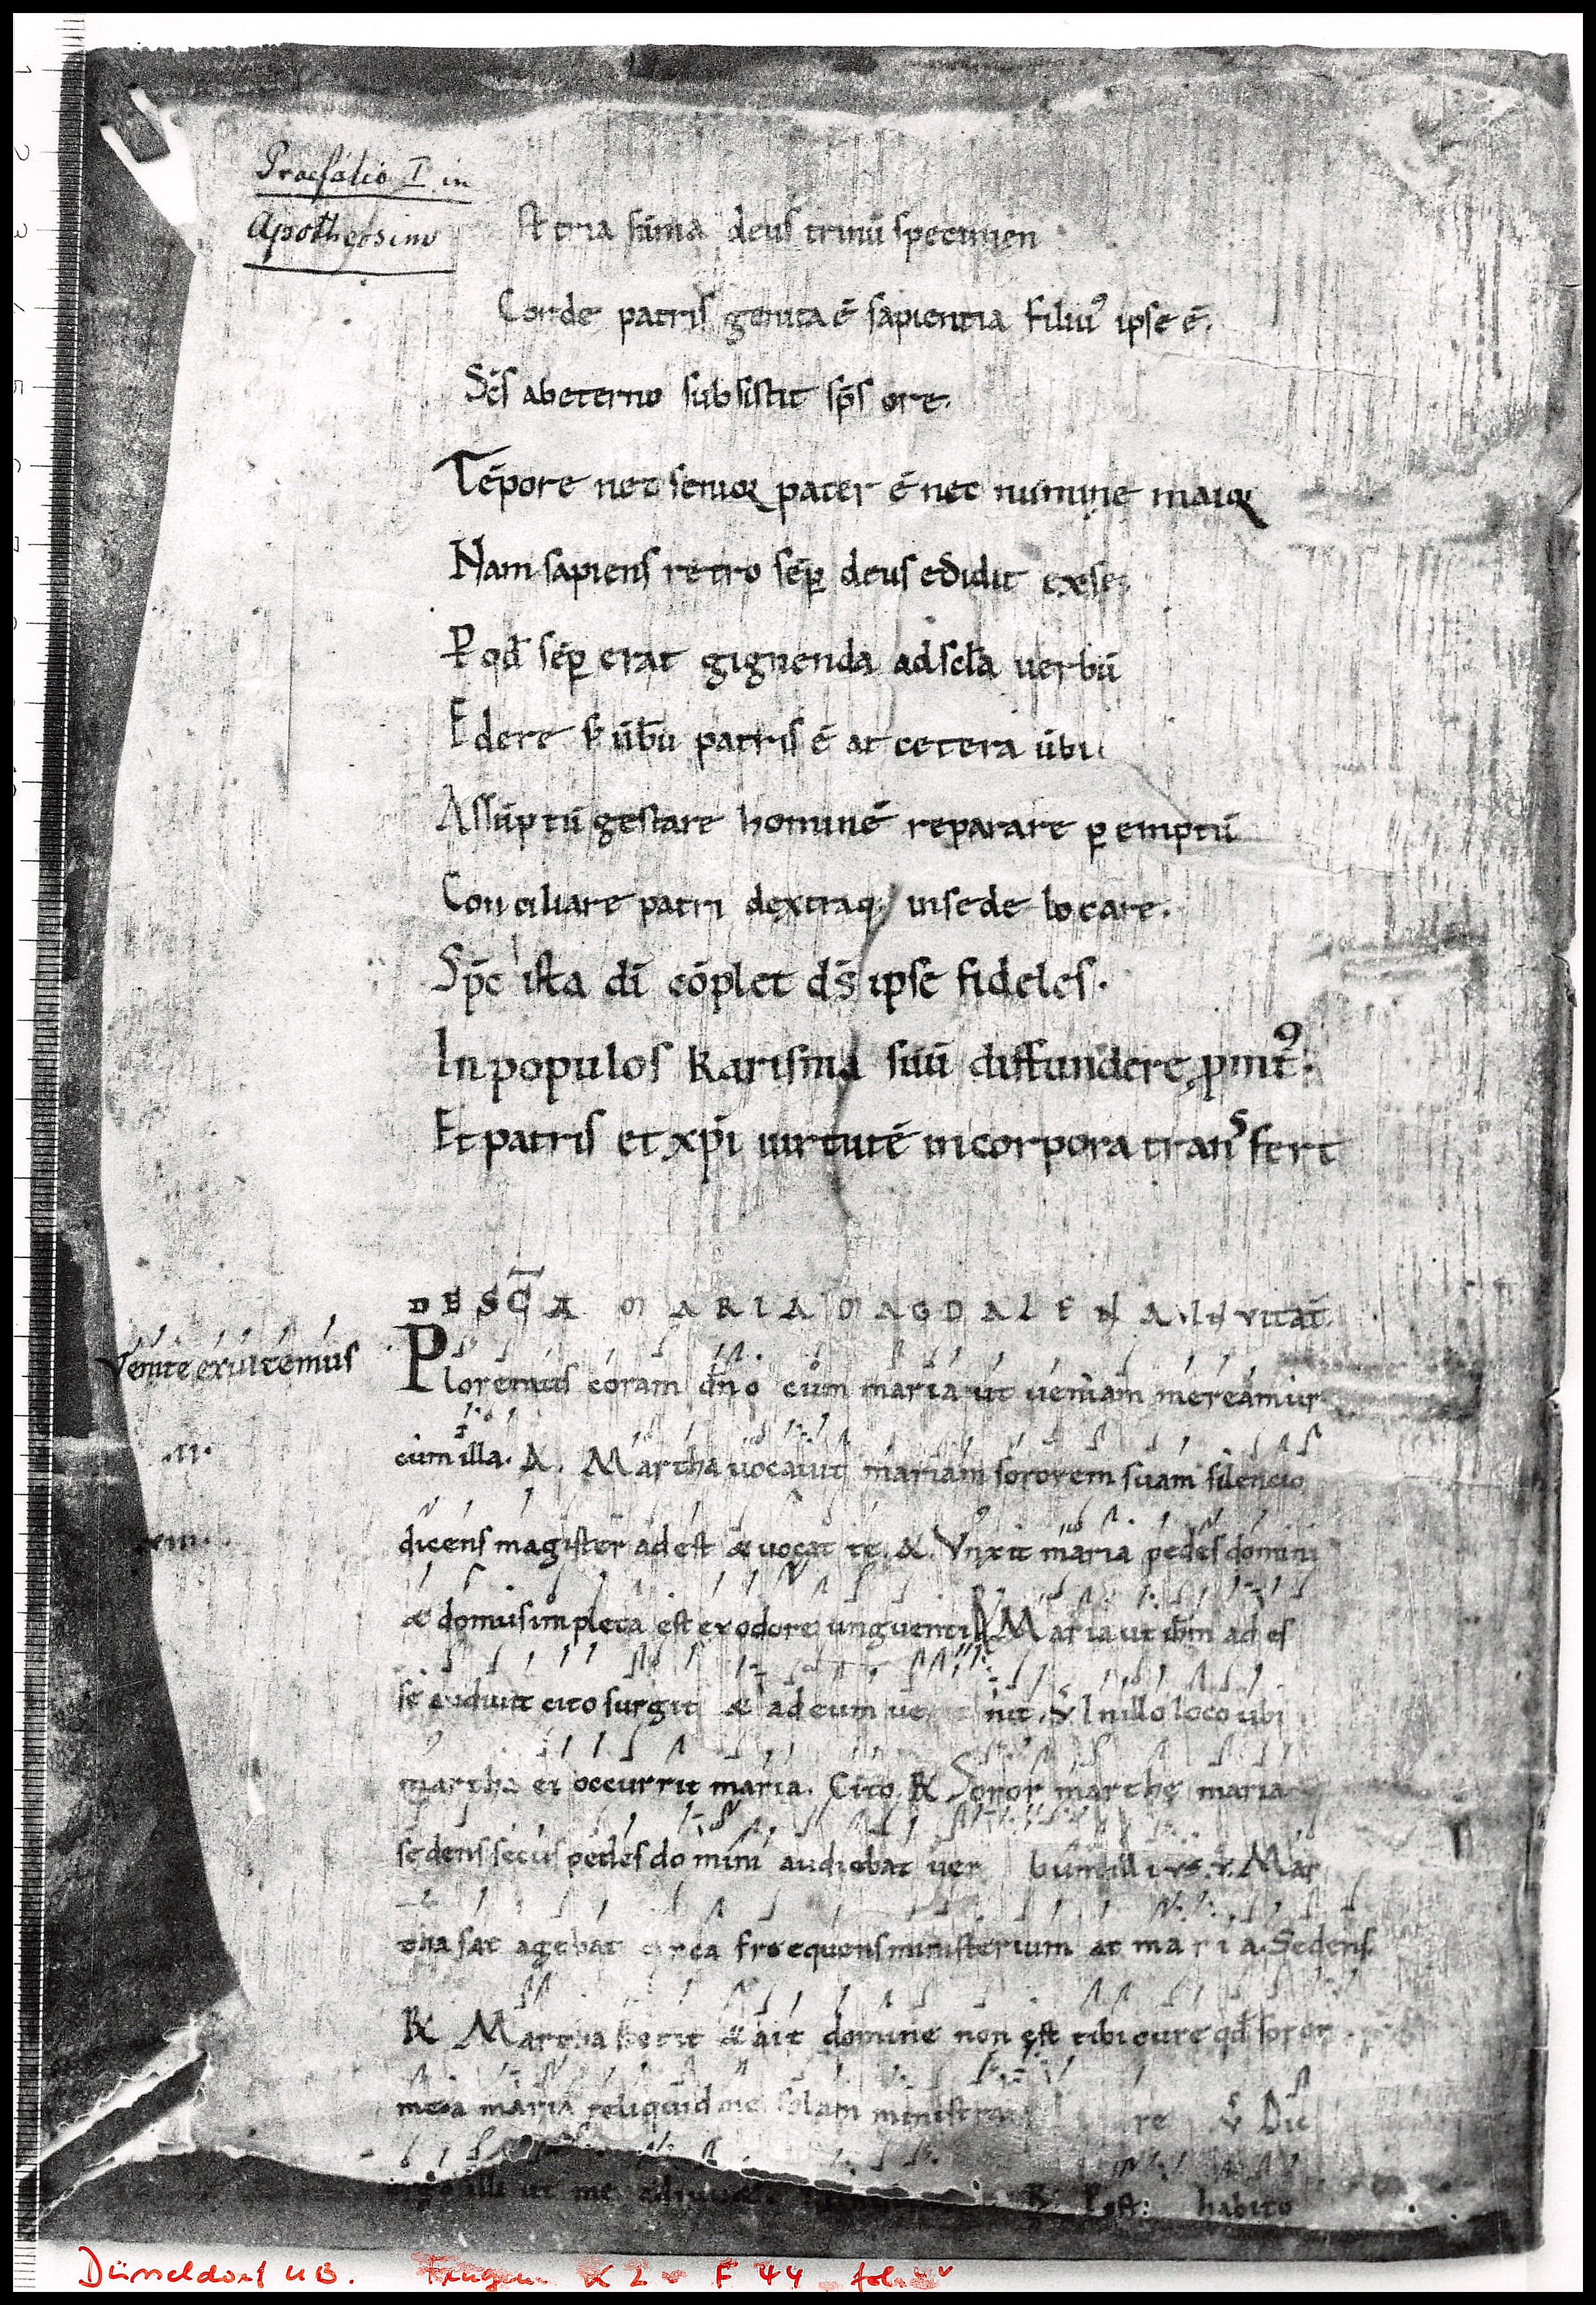 Praefatio I in
Apotheosin
Est tria sūma deus trinū specimen
Corde patris genita ē sapientia filiuꝰ ipse ē.
Sc̄s abeterno subsistit sp̄s ore.
Tēpore nec senior pater ē nec numine maior
Nam sapiens retro sēp deus edidit exse.
P̱ qd̄ sēp erat gignenda adsecl̄a uerbū
Edere s; ūbū patris ē at cetera ūbi
Assūptū gestare hominē reparare ꝑemptū
Conciliare patri dextraq; insede locare.
Sp̄c ista dī cōplet ds̄ ipse fideles.
Inpopulos karisma suū diffundere pmit̄ꝰ.
Et patris et xp̄i uirtutē incorpora transfert
DE SC̄A MARIA MAGDALENA. INVITAT̄.
Venite exultemus
Ploremus coram dn̄o cum maria ut ueniam mereamur
cum illa. A. Martha uocauit mariam sororem suam silencio
.II.
dicens magister adest & uocat te. A. Vnxit maria pedes domini
& domus impleta est exodore unguenti R Maria ut ibm̄ ades
se audiuit cito surgit & ad eum ue nit. V In illo loco ubi
martha ei occurrit maria. Cito. R Soror marthę maria
sedens secus pedes domini audiebat uer bum illius. V. Mar
tha sat agebat circa frequens ministerium at maria. Sedens.
R Martha stetit & ait domine non est tibi cure qd̄ soror
mea maria reliquid me solam ministra re V Dic
ergo illi ut me adiuuet. R Post: habito
Düsseldorf UB. Fragm. K 2 F 44 fol.